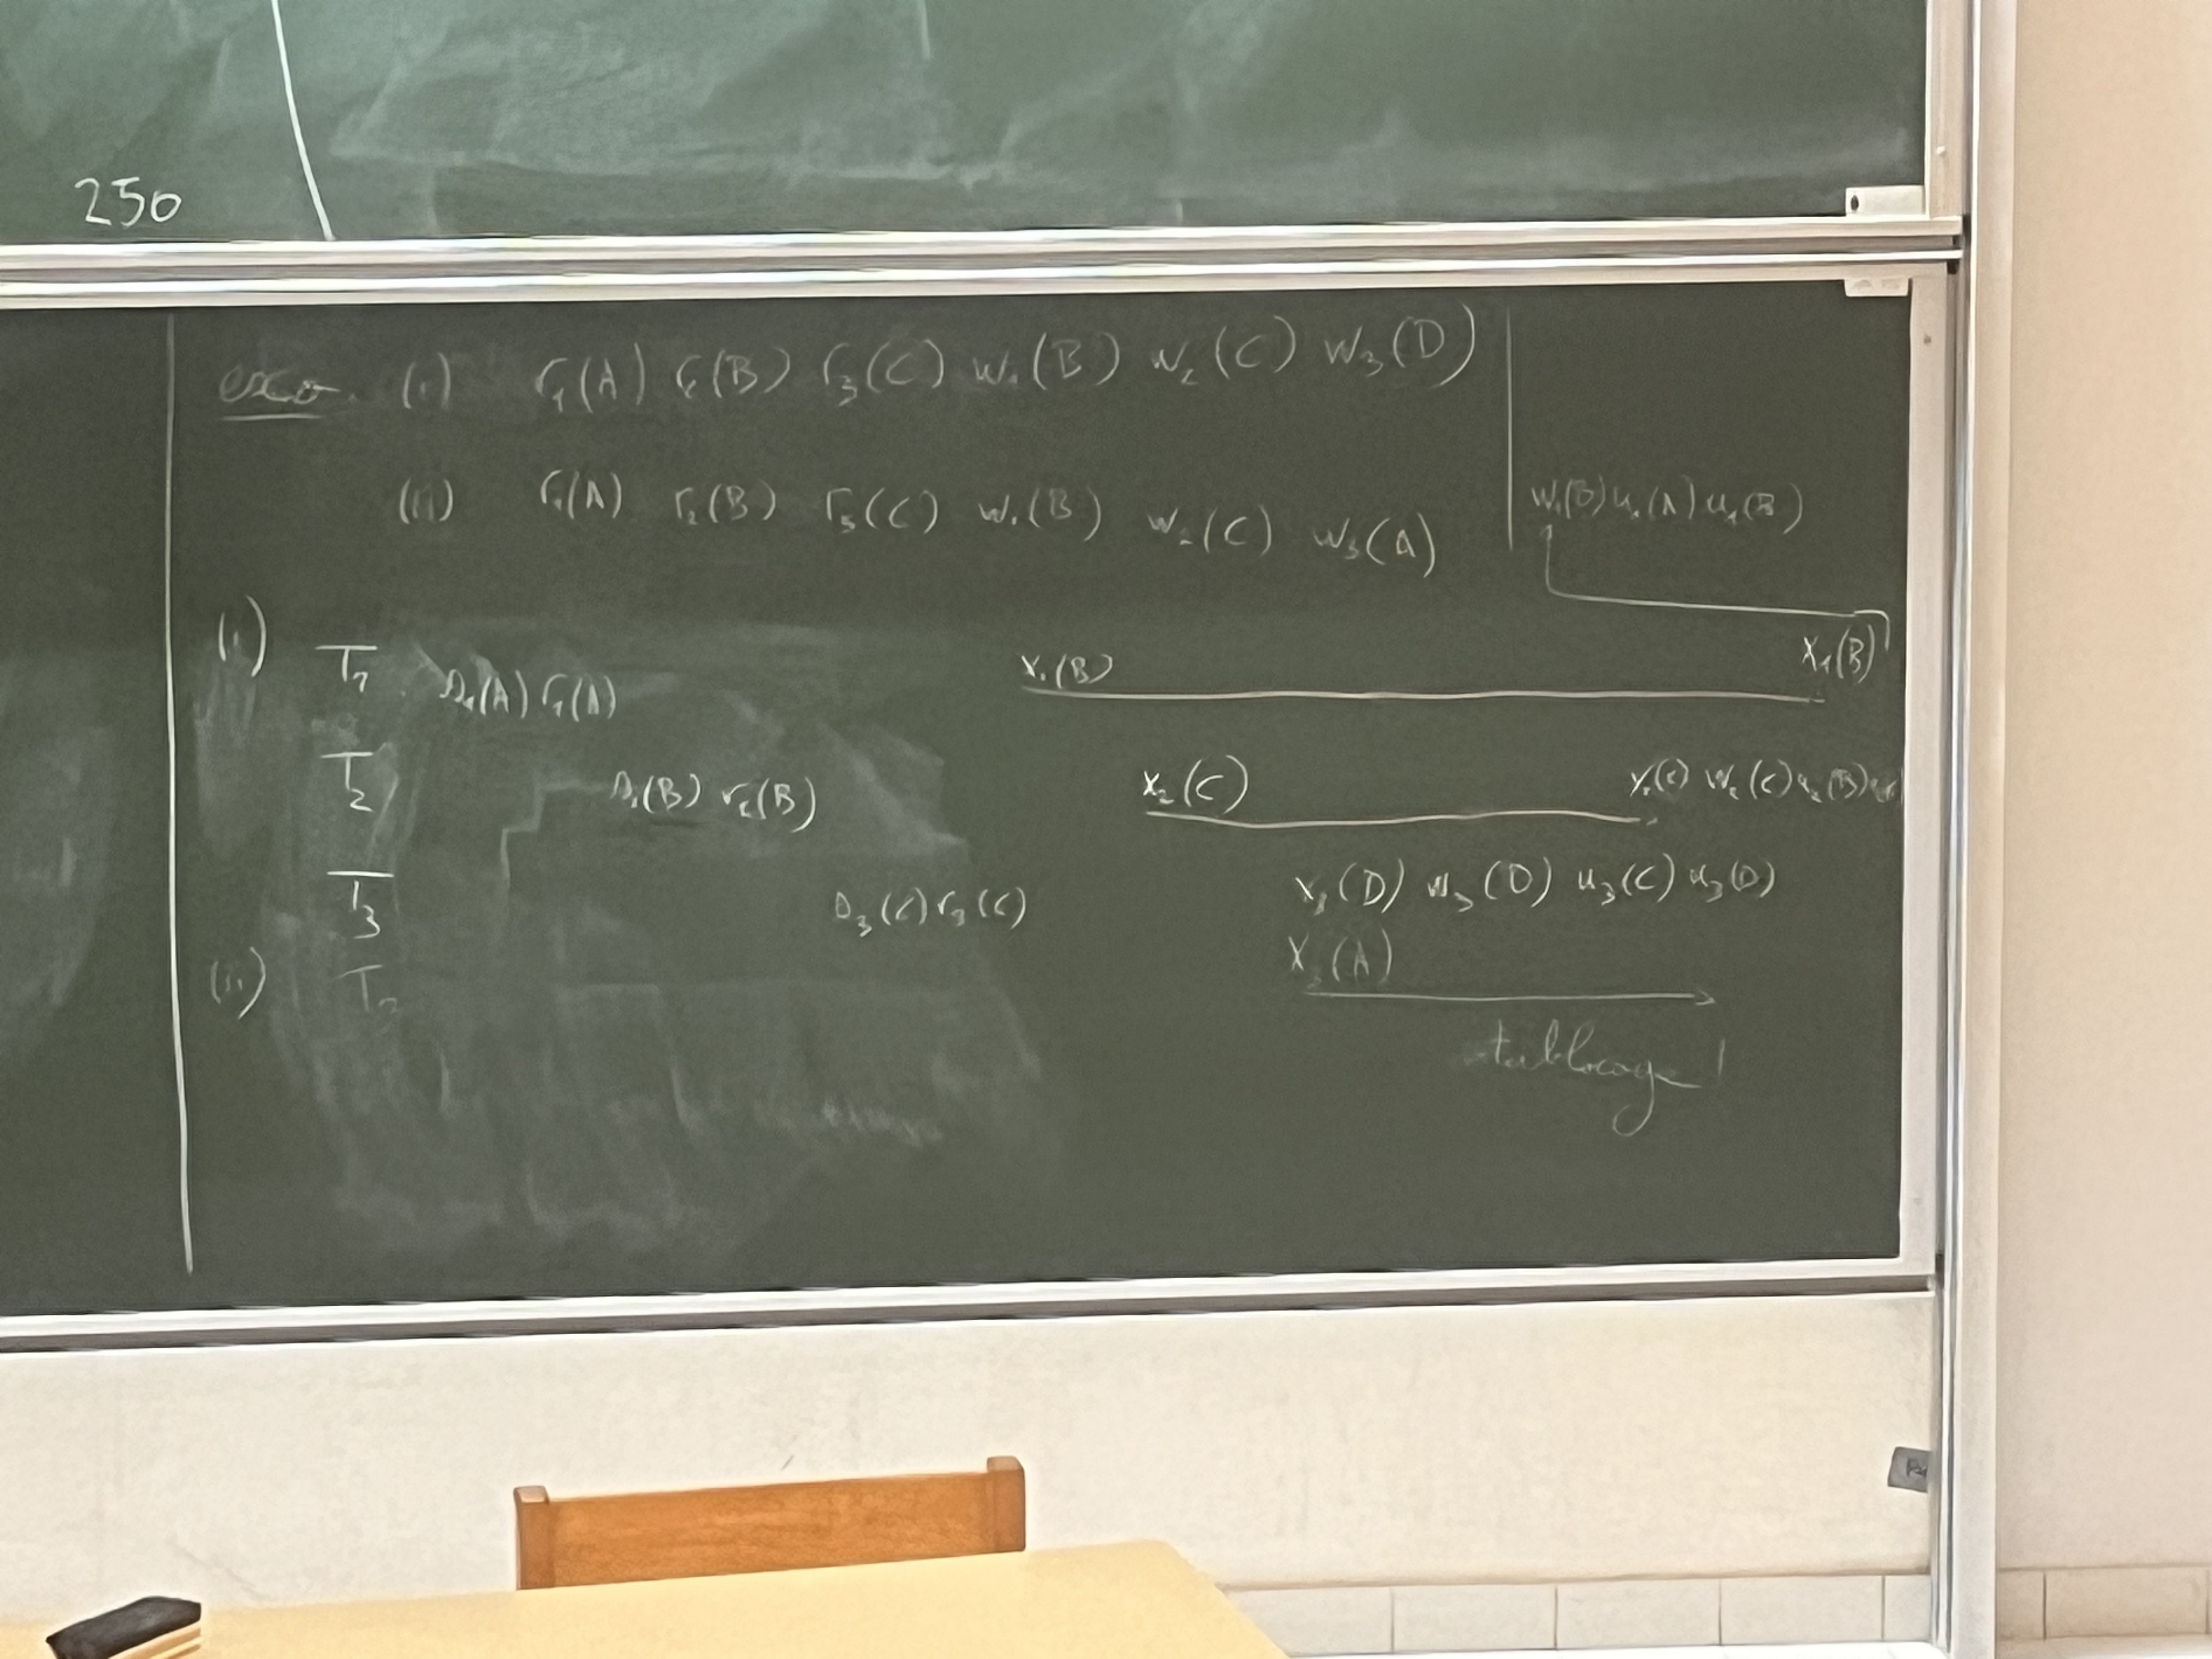 250
exo. (i) r₁(A) r₂(B) r₃(C) w₁(B) w₂(C) w₃(D)
(ii) r₁(A) r₂(B) r₃(C) w₁(B) w₂(C) w₃(A)
w₁(B) u₁(A) u₁(B)
(i) T₁ s₁(A) r₁(A) x₁(B) x₁(B)
T₂ s₂(B) r₂(B) x₂(C) x₂(C) w₂(C) u₂(B)
T₃ s₃(C) r₃(C) x₃(D) w₃(D) u₃(C) u₃(D)
(ii) T₃ x₃(A)